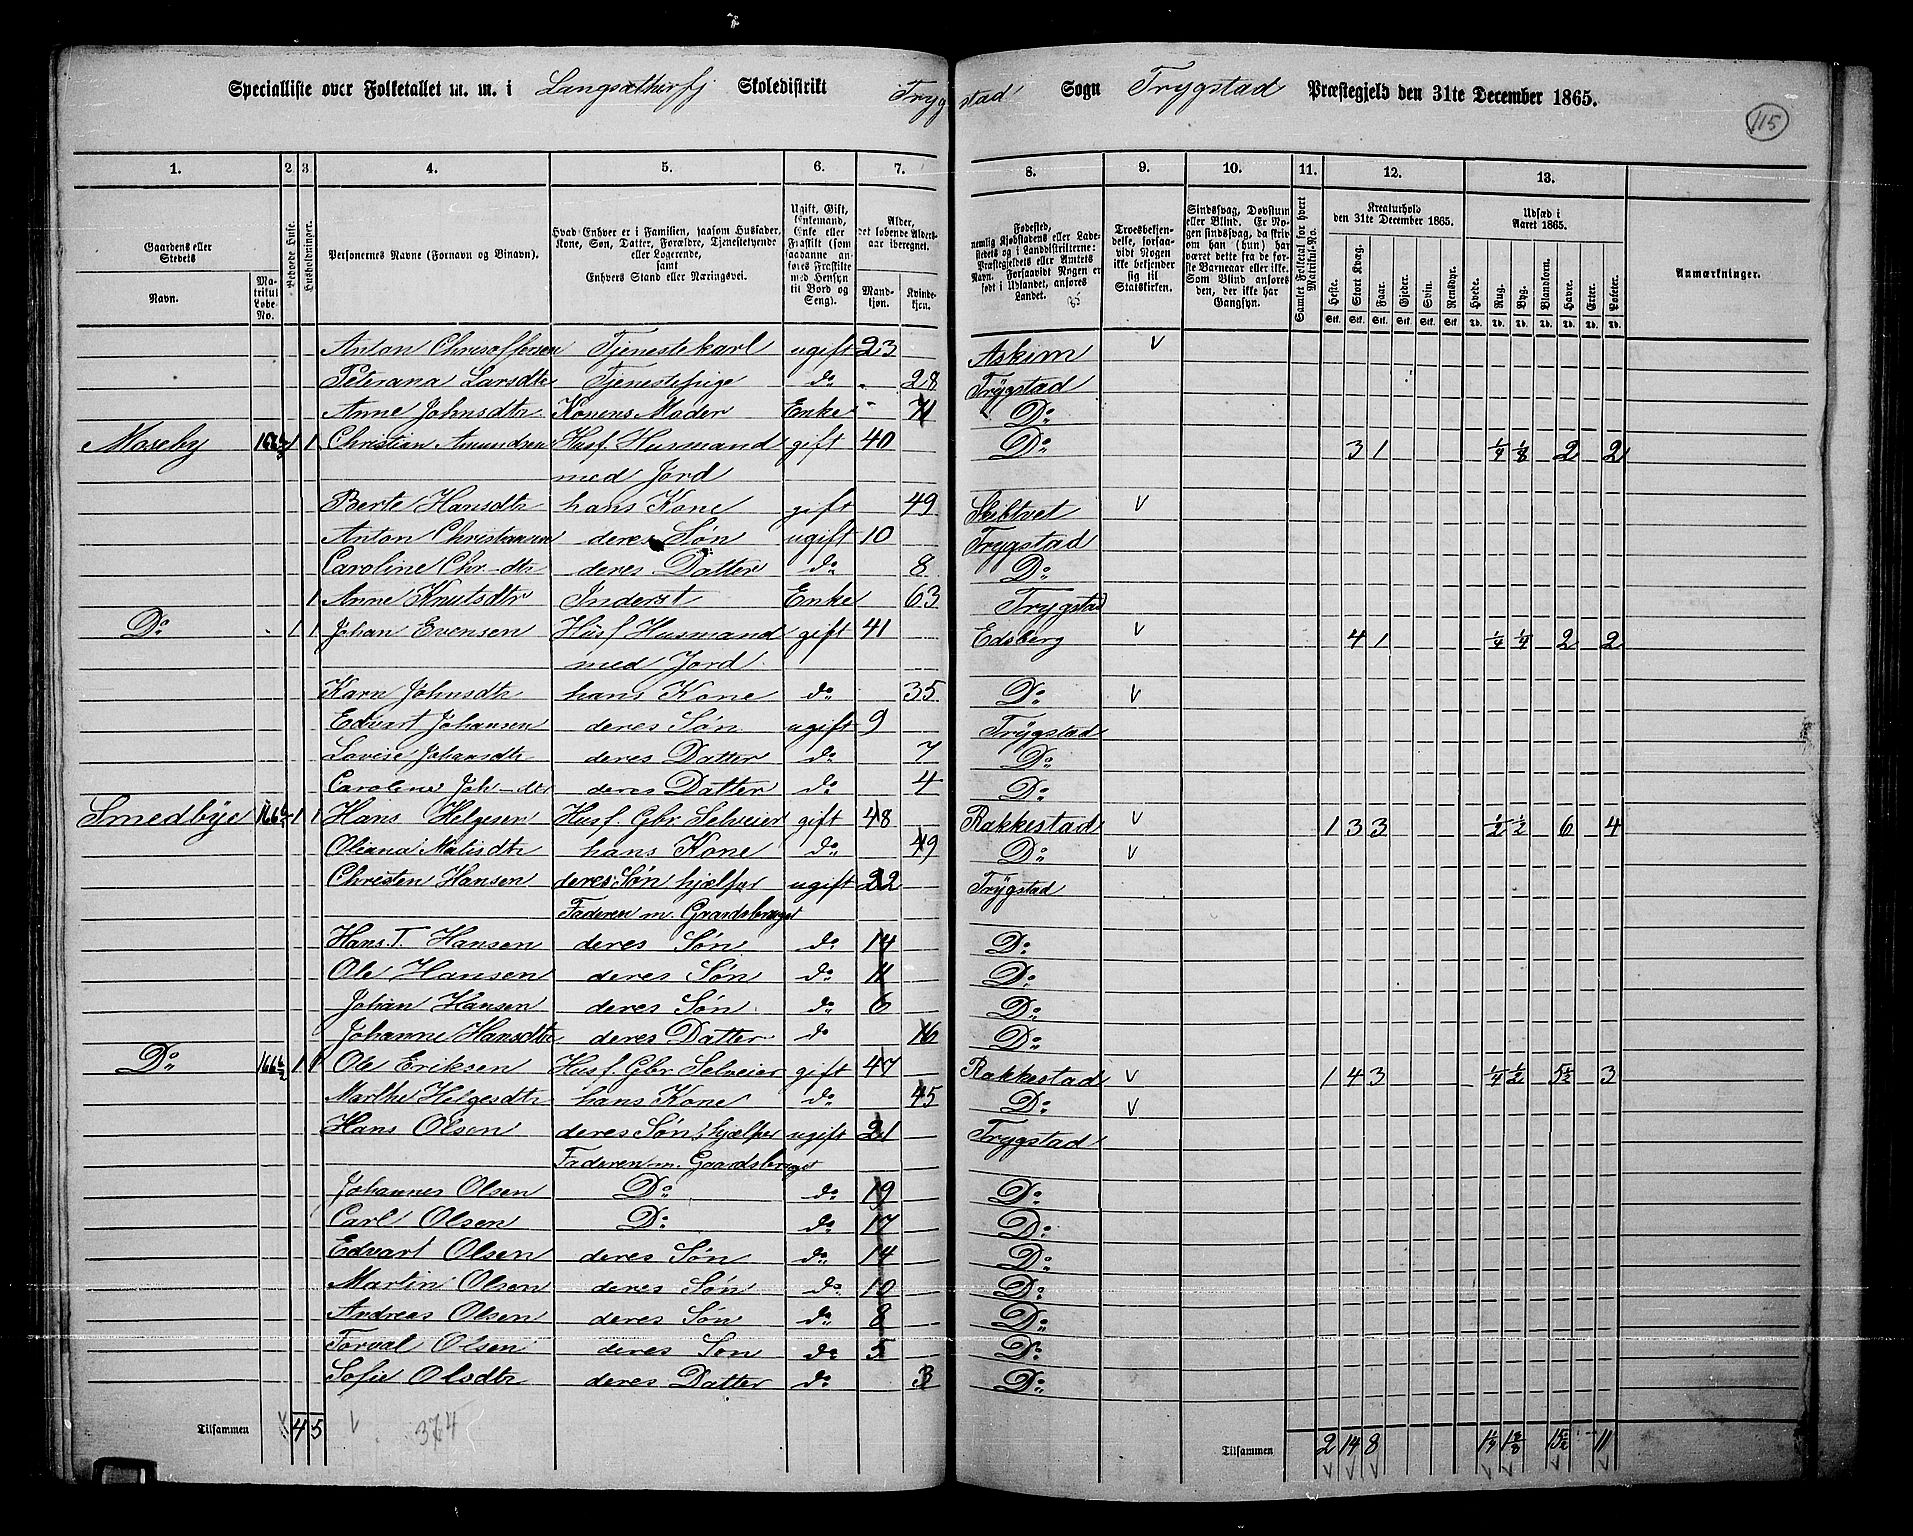 Specialliste over Folketallet m. m. i Skoledistrikt Trygstad Sogn Trygstad Præstegjeld den 31te December 1865.
115
1. 2. 3. 4. 5. 6. 7. 8. 9. 10. 11. 12. 13.
Gaardens eller Stedets Navn. Matrikul Løbe-No. Beboede Huse. Husholdninger. Personernes Navne (Fornavn og Binavn). Hvad Enhver er i Familien, saasom Husfader, Kone, Søn, Datter, Forældre, Tjenestetyende eller Logerende, samt Enhvers Stand eller Næringsvei. Ugift, Gift, Enkemand, Enke eller Fraskilt (som saadanne anføres Fraskilte med Hensyn til Bord og Seng). Alder, det løbende Aldersaar iberegnet. Mandkjøn. Kvindekjøn. Fødested, nemlig Kjøbstadens eller Ladestedets og i Landdistrikterne: Præstegjeldets eller Amtets Navn. Forsaavidt Nogen er født i Udlandet, anføres Landet. Troesbekjendelse, forsaavidt Nogen ikke bekjender sig til Statskirken. Sindssvag, Døvstum eller Blind. Er Nogen sindssvag, da skrives om han (hun) har været dette fra de første Barneaar eller ikke. Som Blind ansees den, der ikke har Gangsyn. Samlet Folketal for hvert Matrikul-No. Kreaturhold den 31te December 1865. Heste. Stort Kvæg. Faar. Gjeder. Svin. Rensdyr. Udsæd i Aaret 1865. Hvede. Rug. Byg. Blandkorn. Havre. Erter. Poteter. Anmærkninger.
Anton Christoffersen Tjenestekarl ugift 23 Askim v
Peterana Larsdtr Tjenestepige do 28 Trygstad
Anne Johnsdtr Konens Moder Enke 71 Do
Moseby 1 1 Christian Amundsen Husf. Husmand gift 40 Do 3 1 1/4 1/8 2 2
med Jord
Berte Hansdtr hans Kone gift 49 Skibtvet v
Anton Christiansen deres Søn ugift 10 Trygstad
Caroline Chr-dtr deres Datter do 8 Do
1 Anne Knutsdtr Inderst Enke 63 Trygstad
Do 1 1 Johan Evensen Husf. Husmand gift 41 Edsberg v 4 1 1/4 1/4 2 2
med Jord
Karn Johnsdtr hans Kone do 35 Do v
Edvart Johansen deres Søn ugift 9 Trygstad
Lovise Johansdtr deres Datter do 7 Do
Caroline Joh-dtr deres Datter do 4 Do
Smedbye 1 1 Hans Helgesen Husf. Gbr. Selveier gift 48 Rakkestad v 1 3 3 1/2 1/2 6 4
Oliana Matisdtr hans Kone do 49 Do v
Christen Hansen deres Søn hjælper ugift 22 Trygstad
Faderen m. Gaardsbruget
Hans T. Hansen deres Søn do 14 Do
Ole Hansen deres Søn do 11 Do
Johan Hansen deres Søn do 6 Do
Johanne Hansdtr deres Datter do 16 Do
Do 1 1 Ole Eriksen Husf. Gbr. Selveier gift 47 Rakkestad v 1 4 3 1/4 1/2 5 1/2 3
Marthe Helgesdtr hans Kone do 45 Do v
Hans Olsen deres Søn, hjælper ugift 21 Trygstad
Faderen m. Gaardsbruget
Johannes Olsen Do do 19 Do
Carl Olsen Do do 17 Do
Edvart Olsen deres Søn do 14 Do
Martin Olsen deres Søn do 10 Do
Andreas Olsen deres Søn do 8 Do
Torval Olsen deres Søn do 5 Do
Sofie Olsdtr deres Datter do 3 Do
Tilsammen v 4 5 v 374 Tilsammen 2 14 8 1 1/4 1 3/8 15 1/2 11